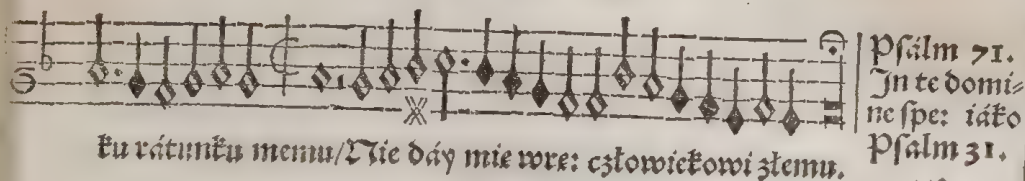 ku rátunku memu/Nie dáy mie wre: człowiekowi złemu.
Psálm 71.
In te domi⸗
ne spe: iáko
Psalm 31.